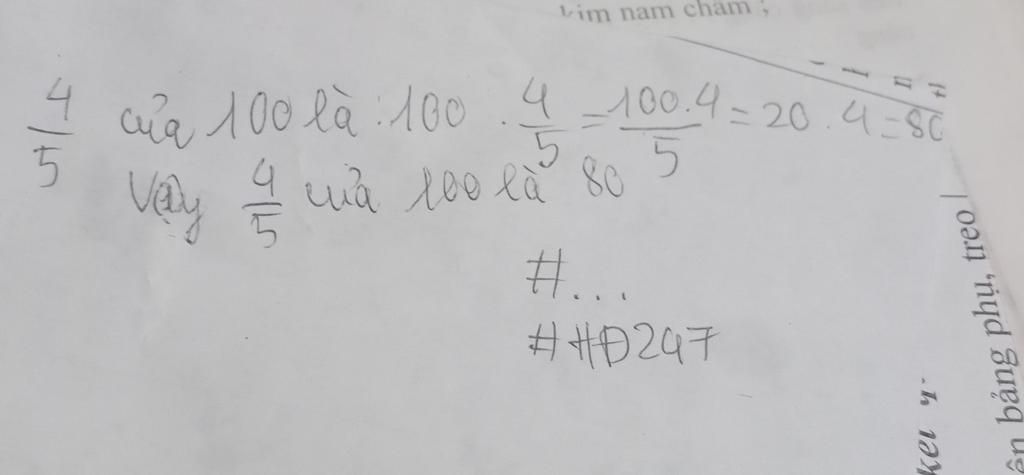 kim nam châm ;
4/5 của 100 là : 100 . 4/5 = 100.4/5 = 20 . 4 = 80
Vậy 4/5 của 100 là 80
#...
#HĐ247
ên bảng phụ, treo